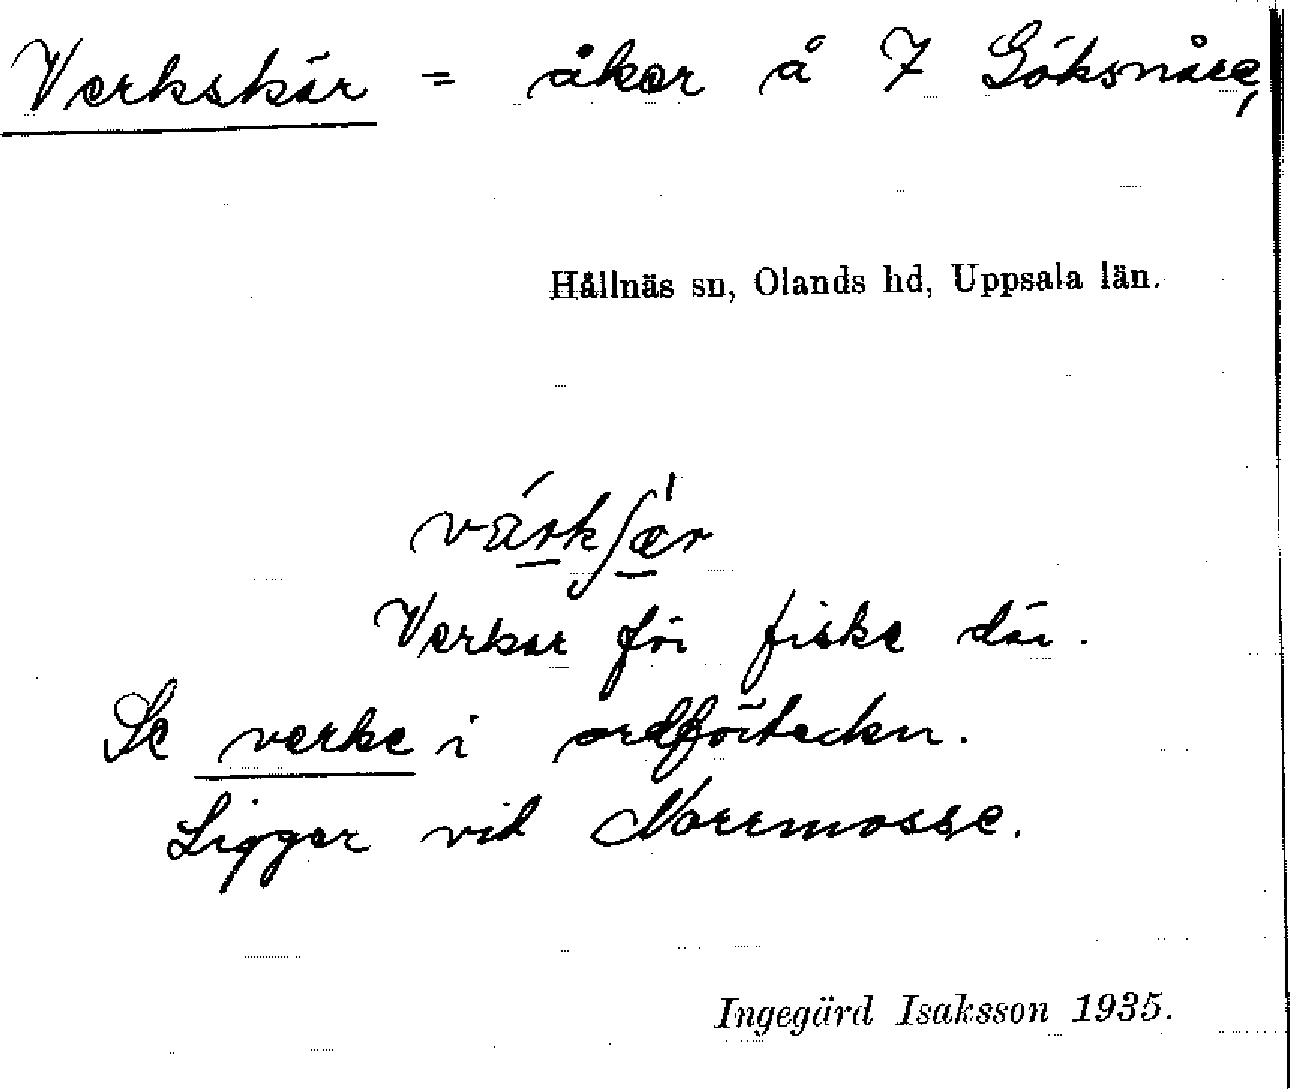 Verkskär = åker å 7 Göksnåre,
Hållnäs sn, Olands hd, Uppsala län.
värkʃær
Verkar för fiske där.
Se verke i ordförteckn.
Ligger vid Norrmosse.
Ingegärd Isaksson 1935.